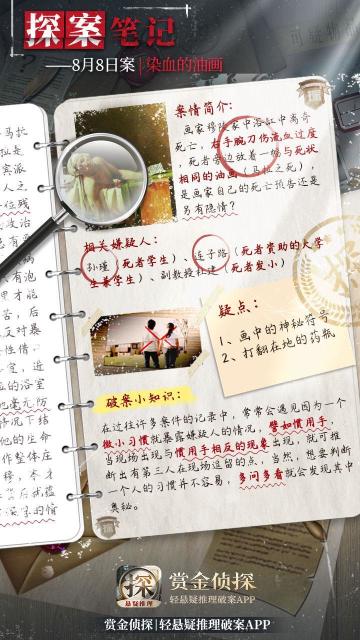 探案笔记
——8月8日案|染血的油画
案情简介：
画家穆
家中浴缸中离奇
死亡，右手腕刀伤流血过度
，死者旁边放着一幅与死状
相同的油画（马拉之死），
是画家自己的死亡预告还是
另有隐情？
相关嫌疑人：
孙瑾（死者学生）、连子路（死者资助的大学
生兼学生）、副教授杜建（死者发小）
疑点：
1、画中的神秘符号
2、打翻在地的药瓶
破案小知识：
在过往许多案件的记录中，常常会遇见因为一个
微小习惯就暴露嫌疑人的情况，譬如惯用手，
当现场出现与惯用手相反的现象出现，就可推
断出有第三人在现场逗留的点，当然，想要判断
一个人的习惯并不容易，多问多看就会发现其中
奥秘。
探
悬疑推理
赏金侦探
轻悬疑推理破案APP
赏金侦探|轻悬疑推理破案APP